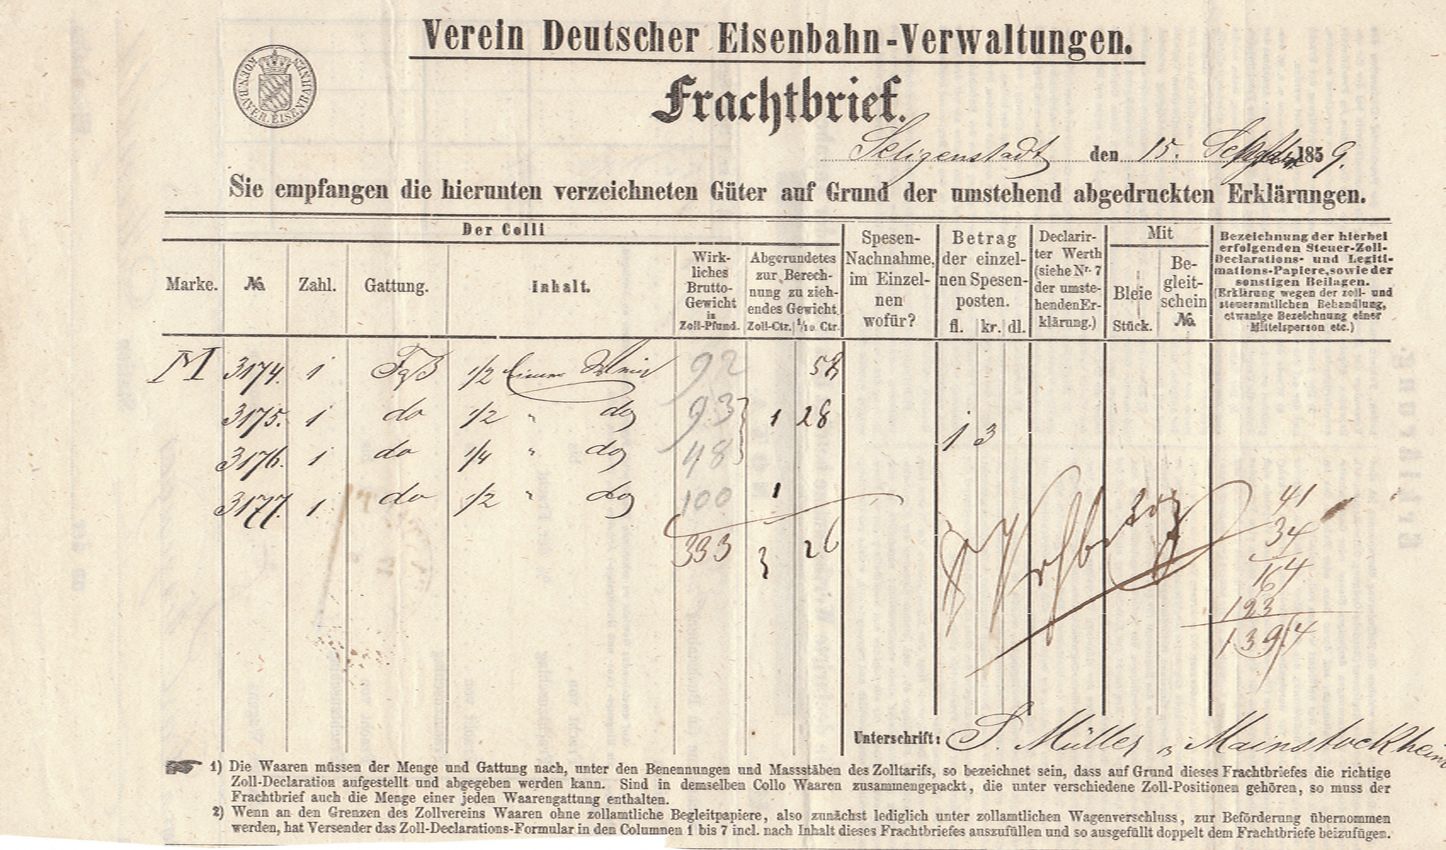 Verein Deutscher Eisenbahn-Verwaltungen.
KOEN. BAYER. EISENBAHNEN
Frachtbrief.
Seligenstadt den 15. 1859.
Sie empfangen die hierunten verzeichneten Güter auf Grund der umstehend abgedruckten Erklärungen.
Der Colli
Marke.
No.
Zahl.
Gattung.
Inhalt.
Wirk-
liches
Brutto-
Gewicht
in
Zoll-Pfund.
Abgerundetes
zur Berech-
nung zu zieh-
endes Gewicht
Zoll-Ctr. 1/10 Ctr.
Spesen-
Nachnahme,
im Einzel-
nen
wofür?
Betrag
der einzel-
nen Spesen-
posten.
fl. kr. dl.
Declarir-
ter Werth
(siehe Nr. 7
der umste-
henden Er-
klärung.)
Mit
Bleie
Stück.
Be-
gleit-
schein
No.
Bezeichnung der hierbei
erfolgenden Steuer-Zoll-
Declarations- und Legiti-
mations-Papiere, sowie der
sonstigen Beilagen.
(Erklärung wegen der zoll- und
steueramtlichen Behandlung,
etwanige Bezeichnung einer
Mittelsperson etc.)
M 3174. 1 Faß 1/2 92
3175. 1 do 1/2 " do 93 1 28
3176. 1 do 1/4 " do 48
3177. 1 do 1/2 " do 100 1
333 3 26
1 3
41
34
164
123
Unterschrift: S. Müller Mainstockheim
1) Die Waaren müssen der Menge und Gattung nach, unter den Benennungen und Massstäben des Zolltarifs, so bezeichnet sein, dass auf Grund dieses Frachtbriefes die richtige
Zoll-Declaration aufgestellt und abgegeben werden kann. Sind in demselben Collo Waaren zusammengepackt, die unter verschiedene Zoll-Positionen gehören, so muss der
Frachtbrief auch die Menge einer jeden Waarengattung enthalten.
2) Wenn an den Grenzen des Zollvereins Waaren ohne zollamtliche Begleitpapiere, also zunächst lediglich unter zollamtlichen Wagenverschluss, zur Beförderung übernommen
werden, hat Versender das Zoll-Declarations-Formular in den Columnen 1 bis 7 incl. nach Inhalt dieses Frachtbriefes auszufüllen und so ausgefüllt doppelt dem Frachtbriefe beizufügen.